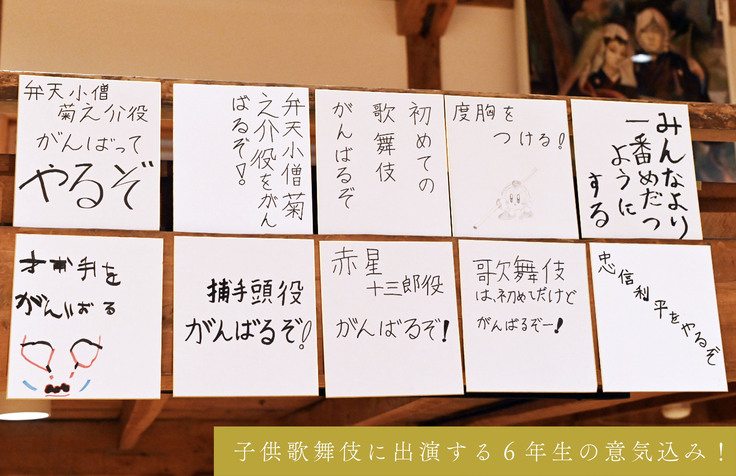 弁天小僧
菊之介役
がんばって
やるぞ
弁天小僧菊
之介役をがん
ばるぞ!
初めての
歌舞伎
がんばるぞ
度胸を
つける!
みんなより
一番めだつ
ように
する
手を
がんばる
捕手頭役
がんばるぞ!
赤星
十三郎役
がんばるぞ!
歌舞伎
は、初めてだけど
がんばるぞー!
忠信利平をやるぞ
子供歌舞伎に出演する6年生の意気込み!